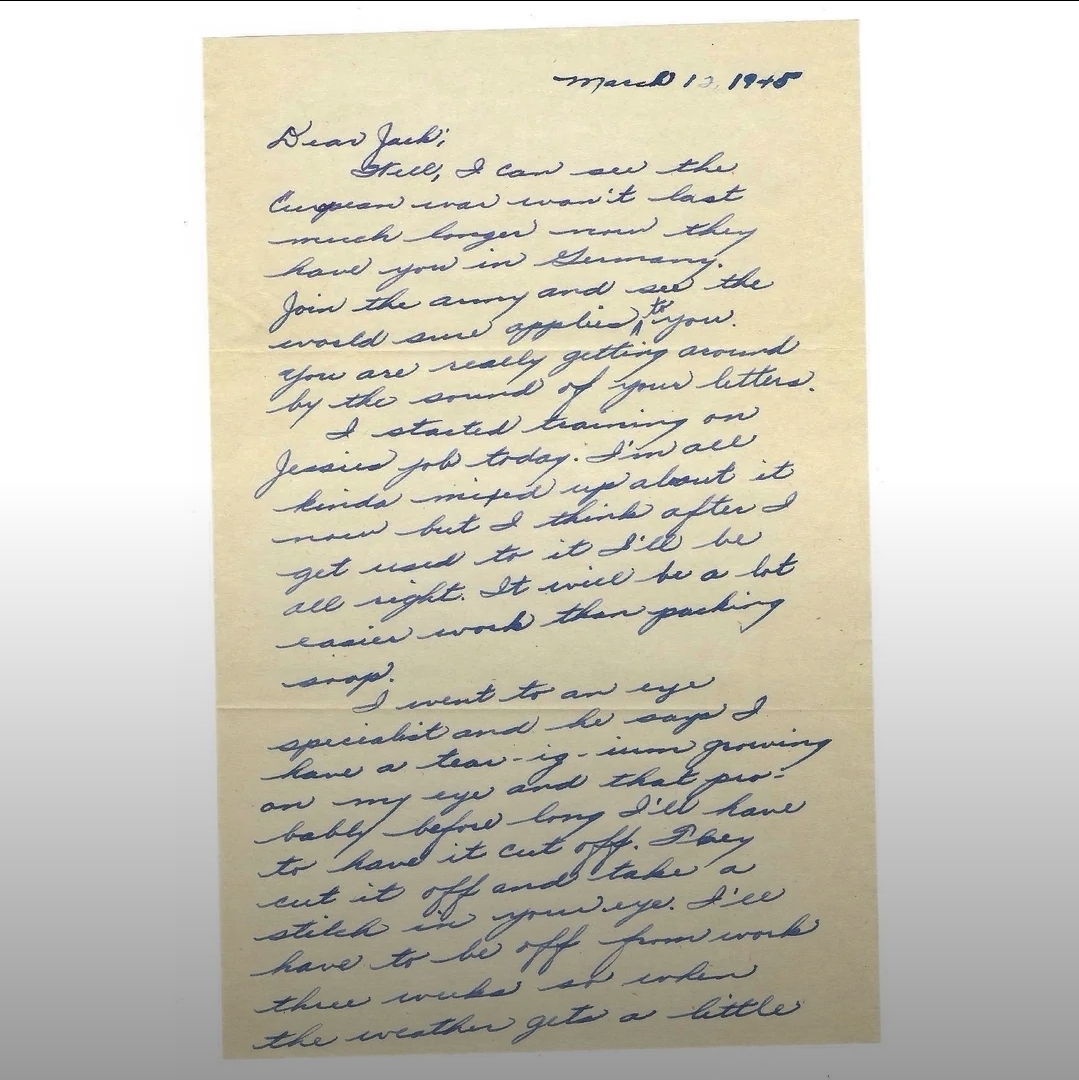 March 12, 1945
Dear Jack;
Well, I can see the
European war won't last
much longer now they
have you in Germany.
Join the army and see the
world sure applies to you.
You are really getting around
by the sound of your letters.
I started training on
Jessies job today. I'm all
kinda mixed up about it
now but I think after I
get used to it I'll be
all right. It will be a lot
easier work than packing
soap.
I went to an eye
specialist and he says I
have a tear-ig-ium growing
on my eye and that pro-
bably before long I'll have
to have it cut off. They
cut it off and take a
stitch in your eye. I'll
have to be off from work
three weeks so when
the weather gets a little